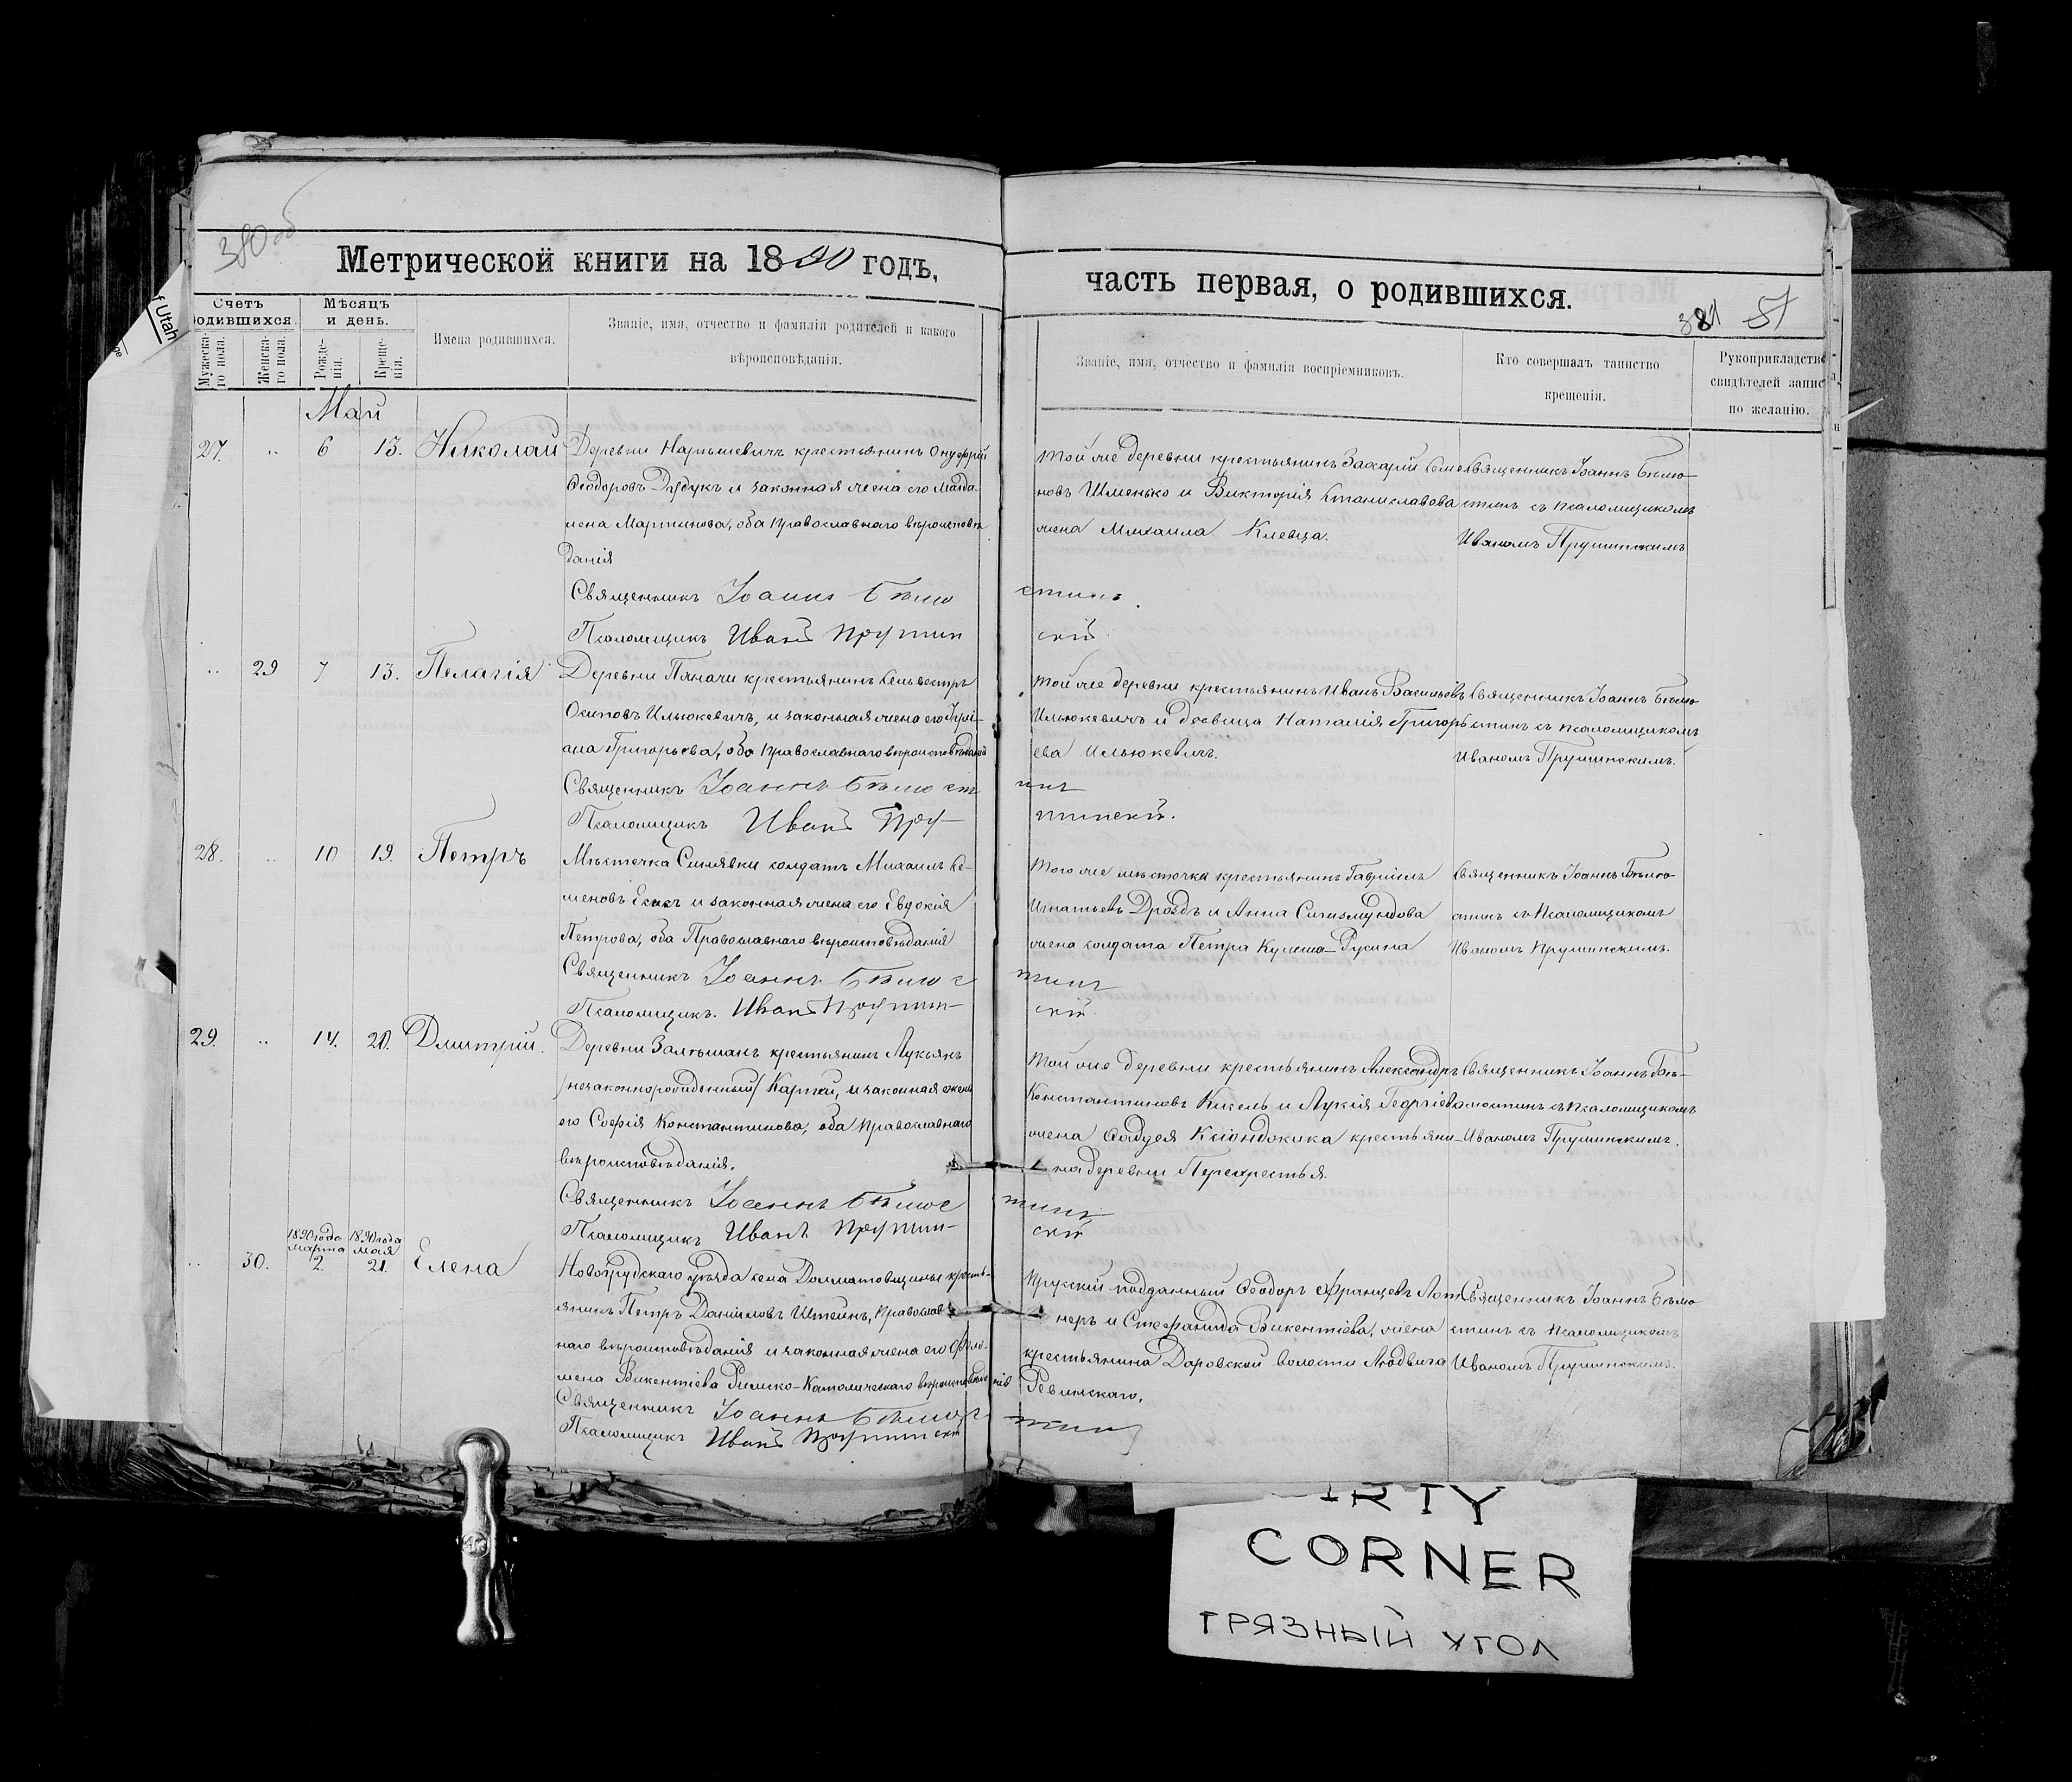 380 об
Метрической книги на 1890 годъ,
часть первая, о родившихся.
381 51
Счетъ родившихся.
Мѣсяцъ и день.
Мужеска-го пола.
Женска-го пола.
Рожде-нія.
Креще-нія.
Имена родившихся.
Званіе, имя, отчество и фамилія родителей и какого
вѣроисповѣданія.
Званіе, имя, отчество и фамилія воспріемниковъ.
Кто совершалъ таинство
крещенія.
Рукоприкладство
свидѣтелей записи
по желанію.
Май
27. .. 6 13. Николай
Деревни Нарышевичъ крестьянинъ Онуфрій
Ѳеодоровъ Дудукъ и законная жена его Магда-
лена Мартинова, оба Православнаго вѣроисповѣ-
данія
Священникъ Іоаннъ Бѣлю
стинъ.
Псаломщикъ Иванъ Прушин
скій.
Той же деревни крестьянинъ Захарій Семе-
новъ Шменько и Викторія Станиславова
жена Михаила Клевца.
Священникъ Іоаннъ Бѣлю-
стинъ съ псаломщикомъ
Иваномъ Прушинскимъ
.. 29 7 13. Пелагія
Деревни Паначи крестьянинъ Сельвестръ
Осиповъ Ильюкевичъ, и законная жена его Іулі-
ана Григорьева, оба Православнаго вѣроисповѣданія
Священникъ Іоаннъ Бѣлюст
инъ
Псаломщикъ Иванъ Пру-
шинскій.
Той же деревни крестьянинъ Иванъ Васильевъ
Ильюкевичъ и дѣвица Наталія Григорь-
ева Ильюкевичъ.
Священникъ Іоаннъ Бѣлю-
стинъ съ псаломщикомъ
Иваномъ Прушинскимъ.
28. .. 10 19. Петръ
Мѣстечка Синявки солдатъ Михаилъ Се-
меновъ и законная жена его Евдокія
Петрова, оба Православнаго вѣроисповѣданія
Священникъ Іоаннъ Бѣлюс
тинъ
Псаломщикъ. Иванъ Прушин-
скій.
Того же мѣстечка крестьянинъ Гавріилъ
Игнатьевъ Дроздъ и Анна Сигизмундова
жена солдата Петра Кулеша-Русина
Священникъ Іоаннъ Бѣлю-
стинъ съ Псаломщикомъ
Иваномъ Прушинскимъ.
29. .. 14. 20. Дмитрій.
Деревни Залѣшанъ крестьянинъ Лукьянъ
/незаконнорожденный/ Картей, и законная жена
его Софія Константинова, оба Православнаго
вѣроисповѣданія.
Священникъ Іоаннъ Бѣлюс
тинъ
Псаломщикъ Иванъ Прушин-
скій
Той же деревни крестьянинъ Александръ
Константиновъ Кисель и Лукія Георгіева
жена Ѳадѳея Ксіондокика крестьяни-
на деревни Перекрестья.
Священникъ Іоаннъ Бѣ-
люстинъ съ псаломщикомъ
Иваномъ Прушинскимъ.
.. 30. 1890 года марта 2. 1890 года мая 21. Елена
Новогрудскаго уѣзда села Долматовщины кресть-
янинъ Петръ Даніиловъ Штейнъ, Православ-
наго вѣроисповѣданія и законная жена его Фило-
мена Викентіева Римско-Католическаго вѣроисповѣданія
Священникъ Іоаннъ Бѣлюс
тинъ
Псаломщикъ Иванъ Прушинскій
Прусскій подданный Ѳеодоръ Францевъ Лот-
неръ и Стефанида Викентіева, жена
крестьянина Даровской волости Людвига
Ревинскаго.
Священникъ Іоаннъ Бѣлю-
стинъ съ псаломщикомъ
Иваномъ Прушинскимъ.
f Utah
IRTY
CORNER
ГРЯЗНЫЙ УГОЛ